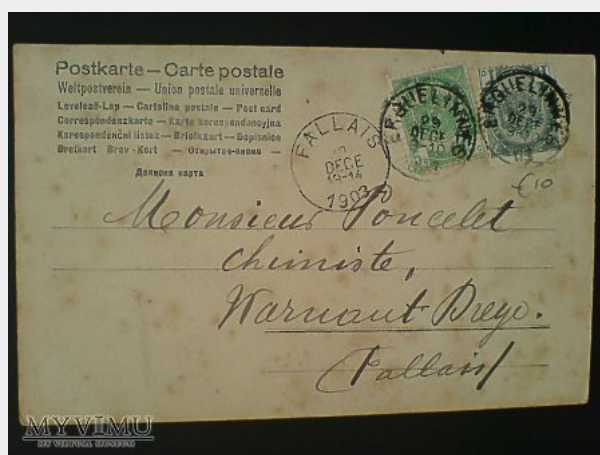 Postkarte — Carte postale
Weltpostverein — Union postale universelle
Levelező-Lap — Cartolina postale — Post card
Correspondenzkarte — Karta korespondencyjna
Korespondenční lístek — Briefkaart — Dopisnica
Brefkort Brev-Kort — Открытое письмо —
Дописна карта
ERQUELINNES
29
DECE
ERQUELINNES
29
DECE
FALLAIS
DECE
13-14
1903
€10
Monsieur Poncelet
chimiste,
Warnant Dreye.
(Fallais)
MYVIMU
MY VIRTUAL MUSEUM